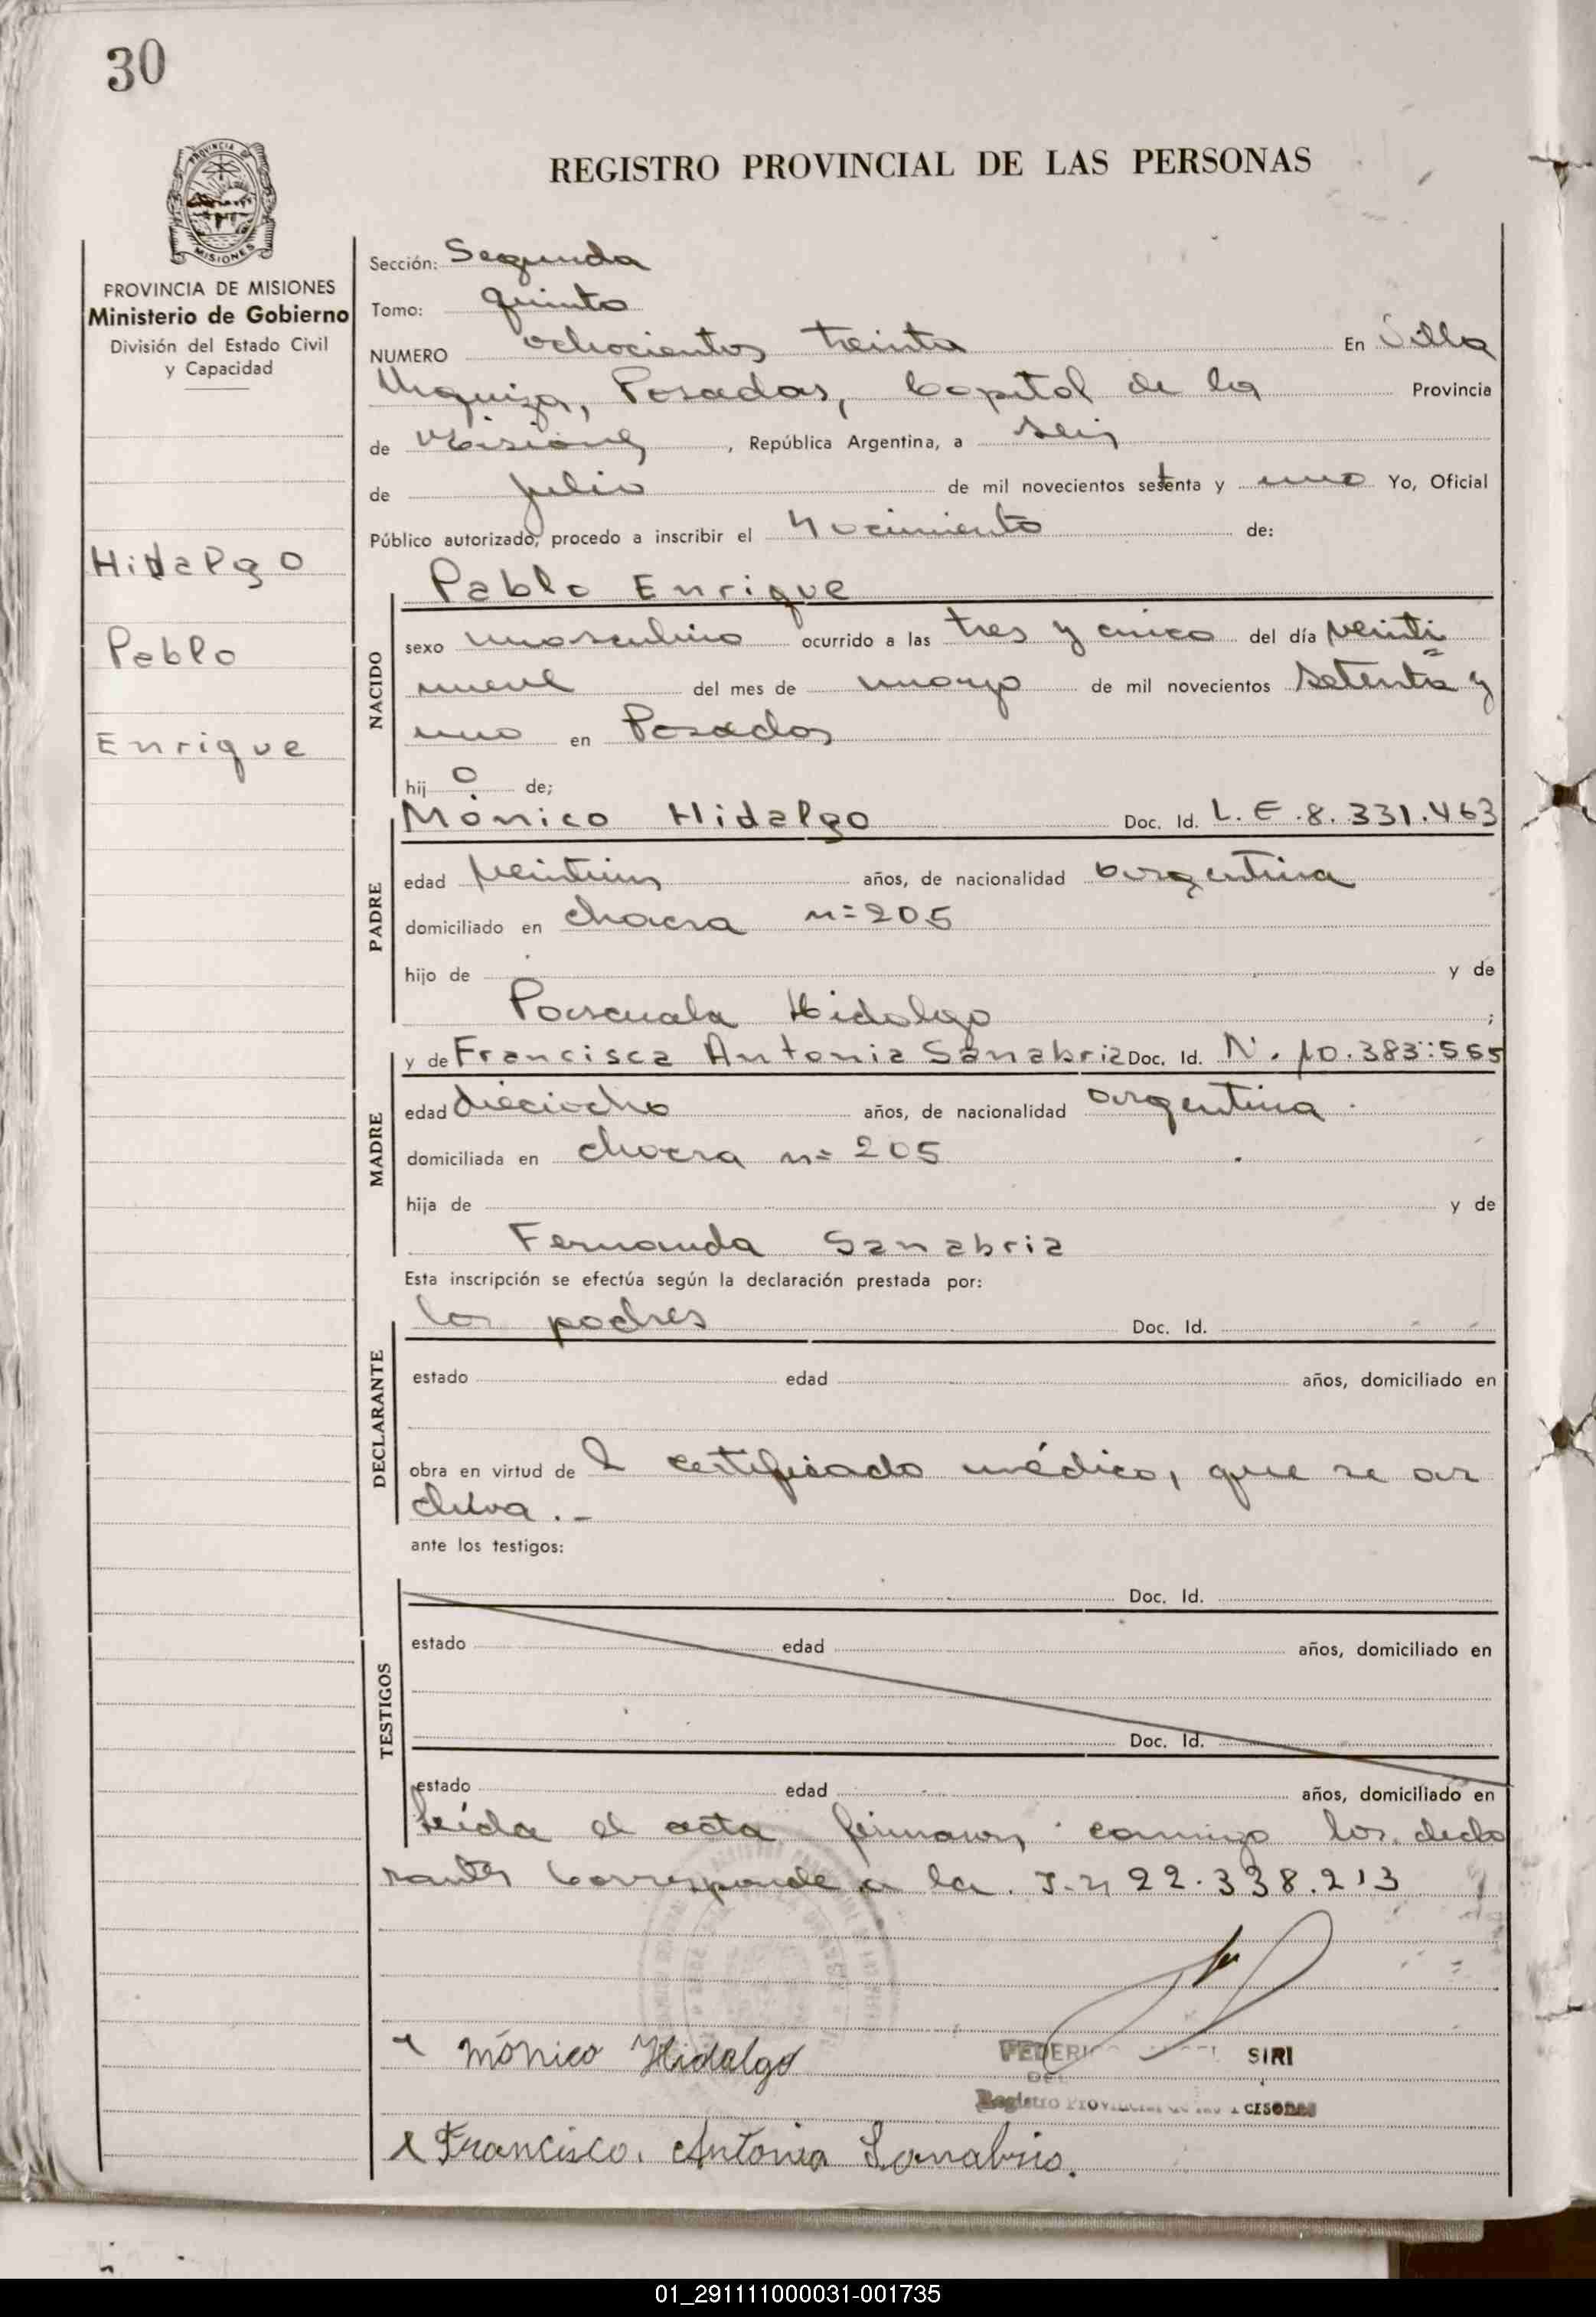 30
REGISTRO PROVINCIAL DE LAS PERSONAS
PROVINCIA DE MISIONES
Ministerio de Gobierno
División del Estado Civil
y Capacidad
Hidalgo
Pablo
Enrique
Sección: Segunda
Tomo: quinto
NUMERO ochocientos treinta En Villa
Urquiza, Posadas, Capital de la Provincia
de Misiones, República Argentina, a seis
de julio de mil novecientos setenta y uno Yo, Oficial
Público autorizado, procedo a inscribir el Nacimiento de:
NACIDO
Pablo Enrique
sexo masculino ocurrido a las tres y cinco del día veinti
nueve del mes de marzo de mil novecientos setenta y
uno en Posadas
hijo de;
PADRE
Mónico Hidalgo Doc. Id. L.E.8.331.463
edad veintiun años, de nacionalidad argentina
domiciliado en chacra n= 205
hijo de y de
Pascuala Hidalgo ;
MADRE
y de Francisca Antonia Sanabria Doc. Id. N. 10.383.565
edad dieciocho años, de nacionalidad argentina
domiciliada en chacra n= 205
hija de y de
Fernanda Sanabria
Esta inscripción se efectúa según la declaración prestada por:
DECLARANTE
los padres Doc. Id.
estado edad años, domiciliado en
obra en virtud de l certificado médico, que se ar
chiva.-
ante los testigos:
TESTIGOS
Doc. Id.
estado edad años, domiciliado en
Doc. Id.
estado edad años, domiciliado en
Leída el acta firman conmigo los decla
rantes Corresponde a la 22.338.213
Mónico Hidalgo
SIRI
Registro Provincial de las Personas
Francisca Antonia Sanabria.
01_291111000031-001735